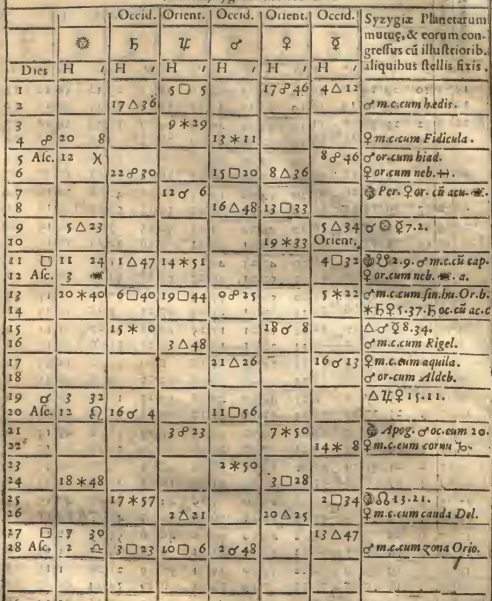 Occid. Orient. Occid. Orient. Occid. Syzygiæ Planetarum
☼ ♄ ♃ ♂ ♀ ☿ mutuę, & eorum con-
greſſus cũ illuſtriorib.
Dies H ′ H ′ H ′ H ′ H ′ aliquibus ſtellis fixis.
1 5 □ 5 17 ☍ 46 4 △ 12
2 17 △ 36 ♂ m.c.cum hædis.
3 9 ✶ 29
4 ☍ 20 8 13 ✶ 11 ♀ m.c.cum Fidicula.
5 Aſc. 12 ♓ 8 ☍ 46 ♂ or.cum hiad.
6 22 ☍ 30 15 □ 20 8 △ 36 ♀ or.cum neb. ♐.
7 12 ☌ 6 Per. ♀ or. cũ acu.
8 16 △ 48 13 □ 33
9 5 △ 23 5 △ 34 ☌ ☼ ☿ 7.2.
10 19 ✶ 33 Orient.
11 □ 11 24 1 △ 47 14 ✶ 51 4 □ 32 ☋ 2.9. ♂ m.c.cũ cap.
12 Aſc. 3 ♒ ♀ or.cum neb. ♒. a.
13 20 ✶ 40 6 □ 40 19 □ 44 0 ☍ 25 5 ✶ 22 ♂ m.c.cum ſin.hu.Or.b.
14 ✶ ♄ ♀ 5.37. ♄ oc.cũ ac.c
15 15 ✶ 0 18 ☌ 8 △ ♂ ☿ 8.34.
16 3 △ 48 ♂ m.c.cum Rigel.
17 21 △ 26 16 ☌ 13 ♀ m.c.cum aquila.
18 ♂ or.cum Aldeb.
19 ☌ 3 32 △ ♃ ♀ 15.11.
20 Aſc. 12 ♌ 16 ☌ 4 11 □ 56
21 3 ☍ 23 7 ✶ 50 Apog. ♂ oc.cum 20.
22 14 ✶ 8 ♀ m.c.cum cornu ♑.
23 2 ✶ 50
24 18 ✶ 48 3 □ 28
25 17 ✶ 57 2 □ 34 ☊ 13.21.
26 2 △ 21 20 △ 25 ♀ m.c.cum cauda Del.
27 □ 7 30 13 △ 47
28 Aſc. 2 ♎ 3 □ 23 10 □ 6 2 ☌ 48 ♂ m.c.cum zona Orio.